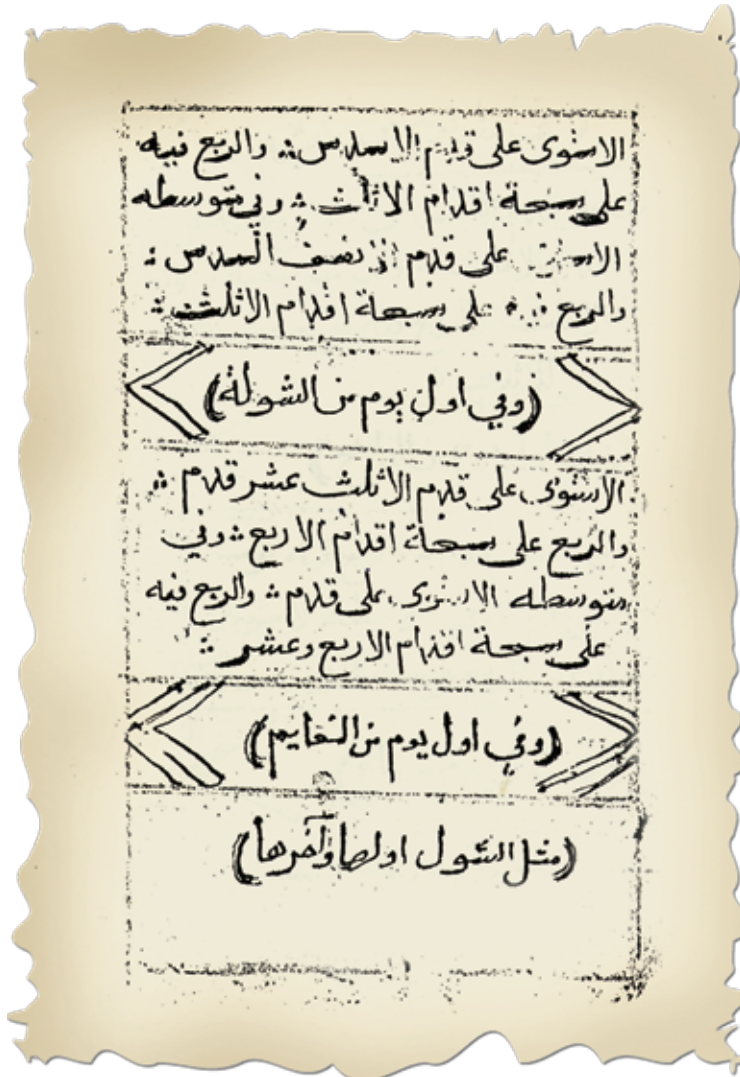 الاستوى على قدم الا سدس ؞ والربع فيه
على سبعة اقدام الا ثلث ؞ وفي متوسطه
على قدم الا نصف السدس ؞
والربع على سبعة اقدام الا ثلث ؞
(وفي اول يوم من الشولة)
الاستوى على قدم الا ثلث عشر قدم ؞
والربع على سبعة اقدام الا ربع ؞ وفي
متوسطه الاستوى على قدم ؞ والربع فيه
على سبعة اقدام الا ربع وعشر ؞
(وفي اول يوم من النعايم)
(مثل الشول اولها وآخرها)